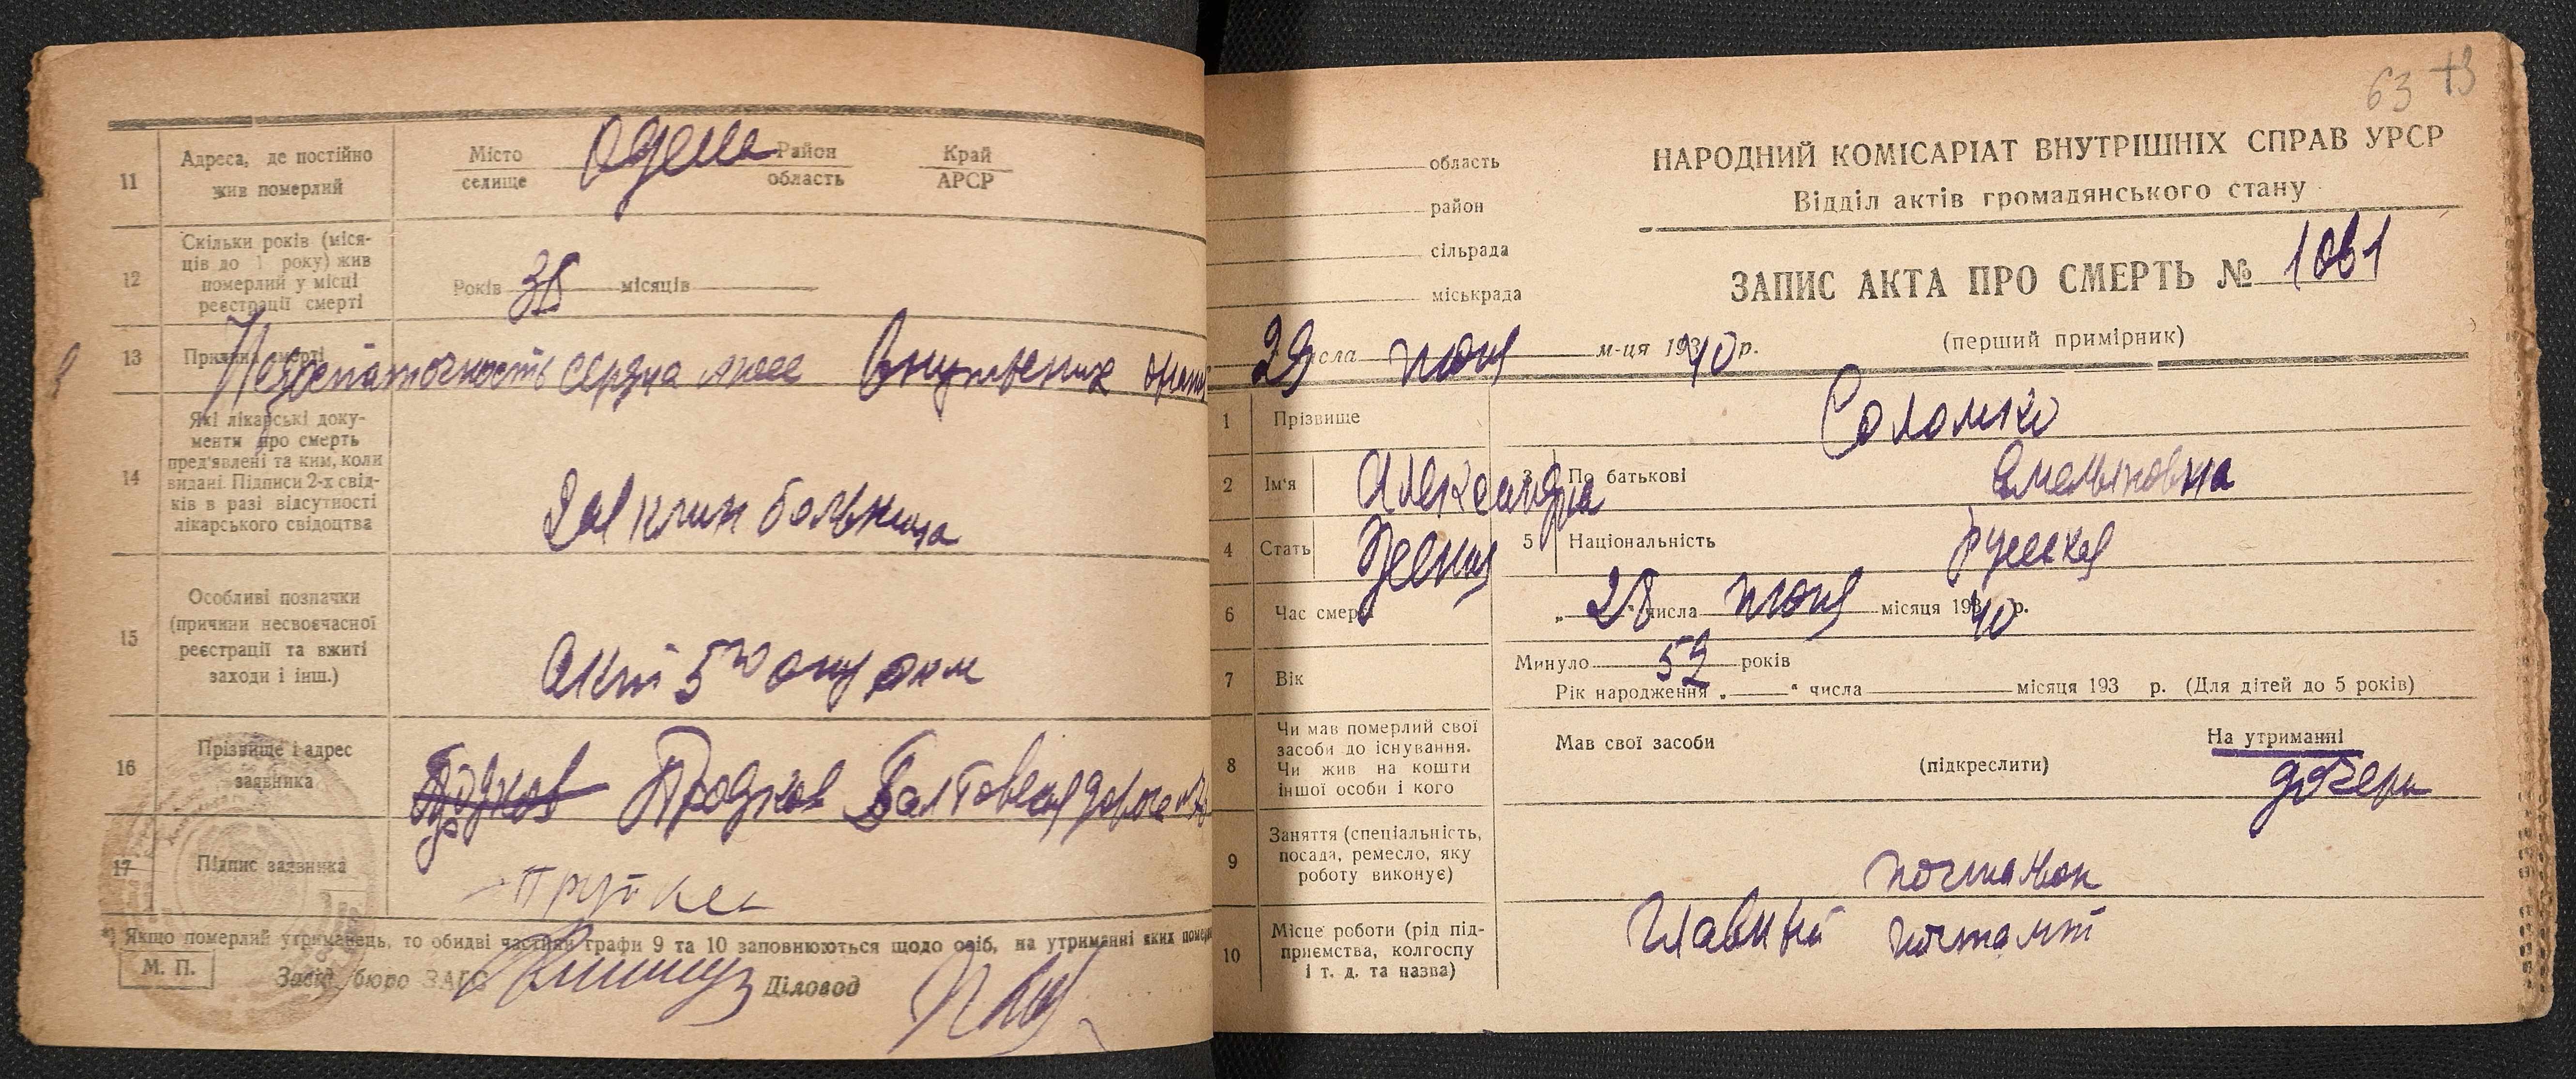 11
Адреса, де постійно
жив померлий
Місто
селище
Одесса
Район
область
Край
АРСР
12
Скільки років (міся-
ців до 1 року) жив
померлий у місці
реєстрації смерті
Років 38 місяців
13
Причина смерті
Недостаточность сердца
14
Які лікарські доку-
менти про смерть
пред'явлені та ким, коли
видані. Підписи 2-х свід-
ків в разі відсутності
лікарського свідоцтва
клин больница
15
Особливі позначки
(причини несвоєчасної
реєстрації та вжиті
заходи і інш.)
16
Прізвище і адрес
заявника
17
Підпис заявника
*) Якщо померлий утриманець, то обидві частини графи 9 та 10 заповнюються щодо осіб, на утриманні яких
М. П.
Завід. бюро ЗАГС
Діловод
63
НАРОДНИЙ КОМІСАРІАТ ВНУТРІШНІХ СПРАВ УРСР
Відділ актів громадянського стану
область
район
сільрада
міськрада
ЗАПИС АКТА ПРО СМЕРТЬ №
(перший примірник)
29 июня м-ця 1940 р.
1 Прізвище Соломко
2 Ім'я Александра
3 По батькові Емельяновна
4 Стать
5 Національність русская
6 Час смерті „ 28 " числа июня місяця 1940 р.
7 Вік
Минуло 59 років
Рік народження „ " числа місяця 193 р. (Для дітей до 5 років)
8
Чи мав померлий свої
засоби до існування.
Чи жив на кошти
іншої особи і кого
Мав свої засоби
(підкреслити)
На утриманні
дочери
9
Заняття (спеціальність,
посада, ремесло, яку
роботу виконує)
почтальон
10
Місце роботи (рід під-
приємства, колгоспу
і т. д. та назва)
Главный почтамт